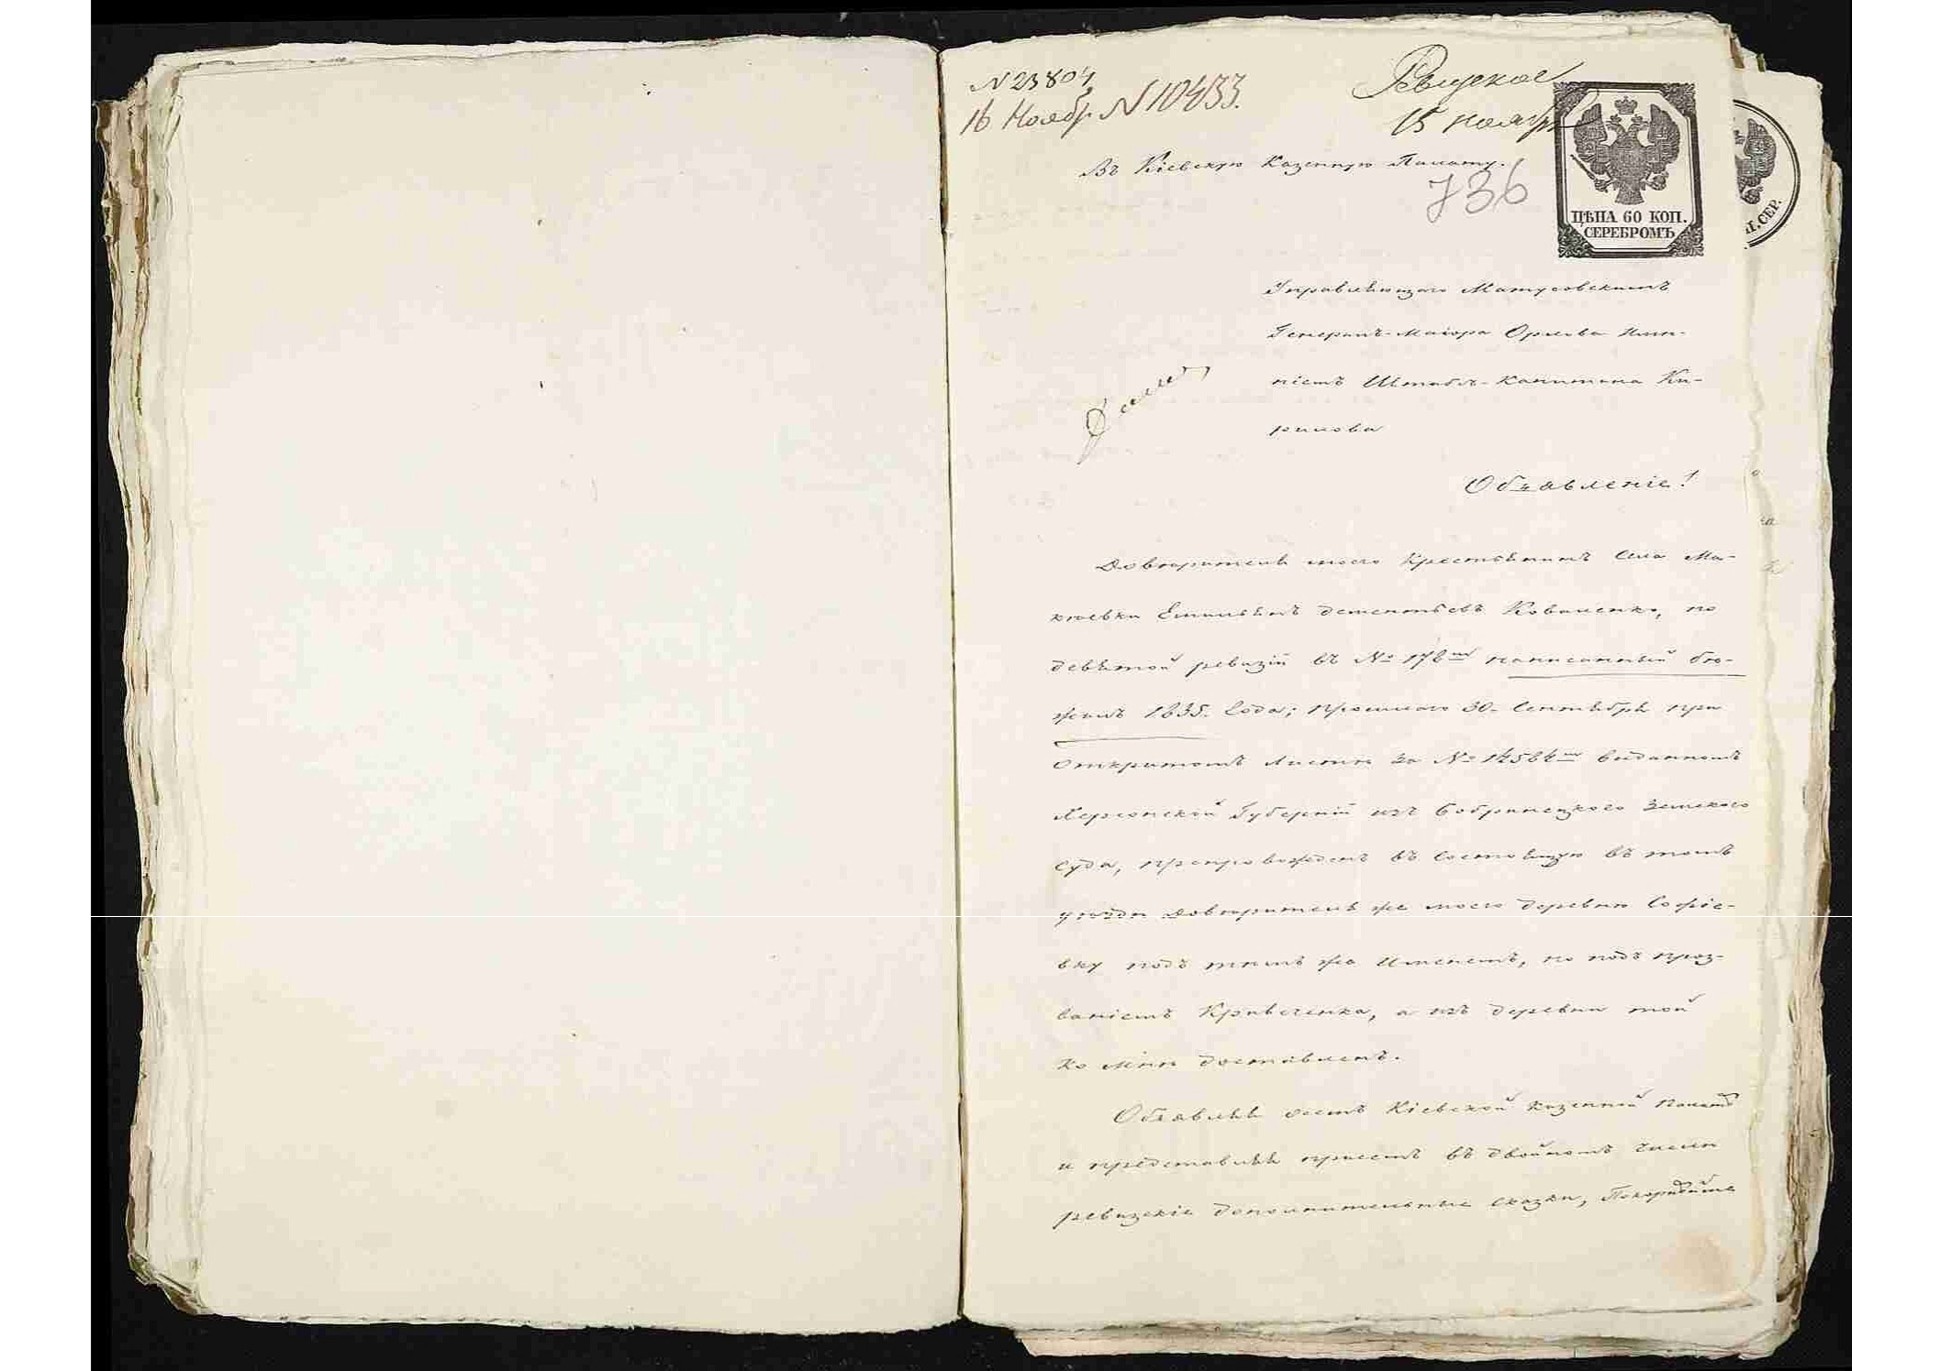 N 23804
16 Ноябр N 10433.
15 ноябр
Въ Кіевскую Казенную Палату.
736
ЦѢНА 60 КОП.
СЕРЕБРОМЪ
СЕР.
Управляющаго Матусовскимъ
Генералъ-Маіора Орлова Имѣ-
ніемъ Штабсъ-Капитана Ки-
рилова
Объявленіе!
Довѣрителя моего Крестьянинъ Села Ма-
кіевки Емельянъ Дементьевъ Коваленко, по
девятой ревизіи въ № написанный бѣ-
жалъ 1835. Года; прошлаго 30. Сентября при
Открытомъ Листѣ за № 14564 выданномъ
Херсонской Губерніи изъ Бобринецкаго Земскаго
Суда, препровожденъ въ Состоящую въ томъ
уѣздѣ Довѣрителя же моего деревню Софіе-
вку подъ тѣмъ же Именемъ, но подъ проз-
ваніемъ Кравченка, а изъ деревни той
Ко Мнѣ доставленъ.
Объявляя осемъ Кіевской Казенной Палатѣ
и представляя присемъ въ двойномъ числѣ
ревизскіе дополнительные сказки, Покорнѣйше